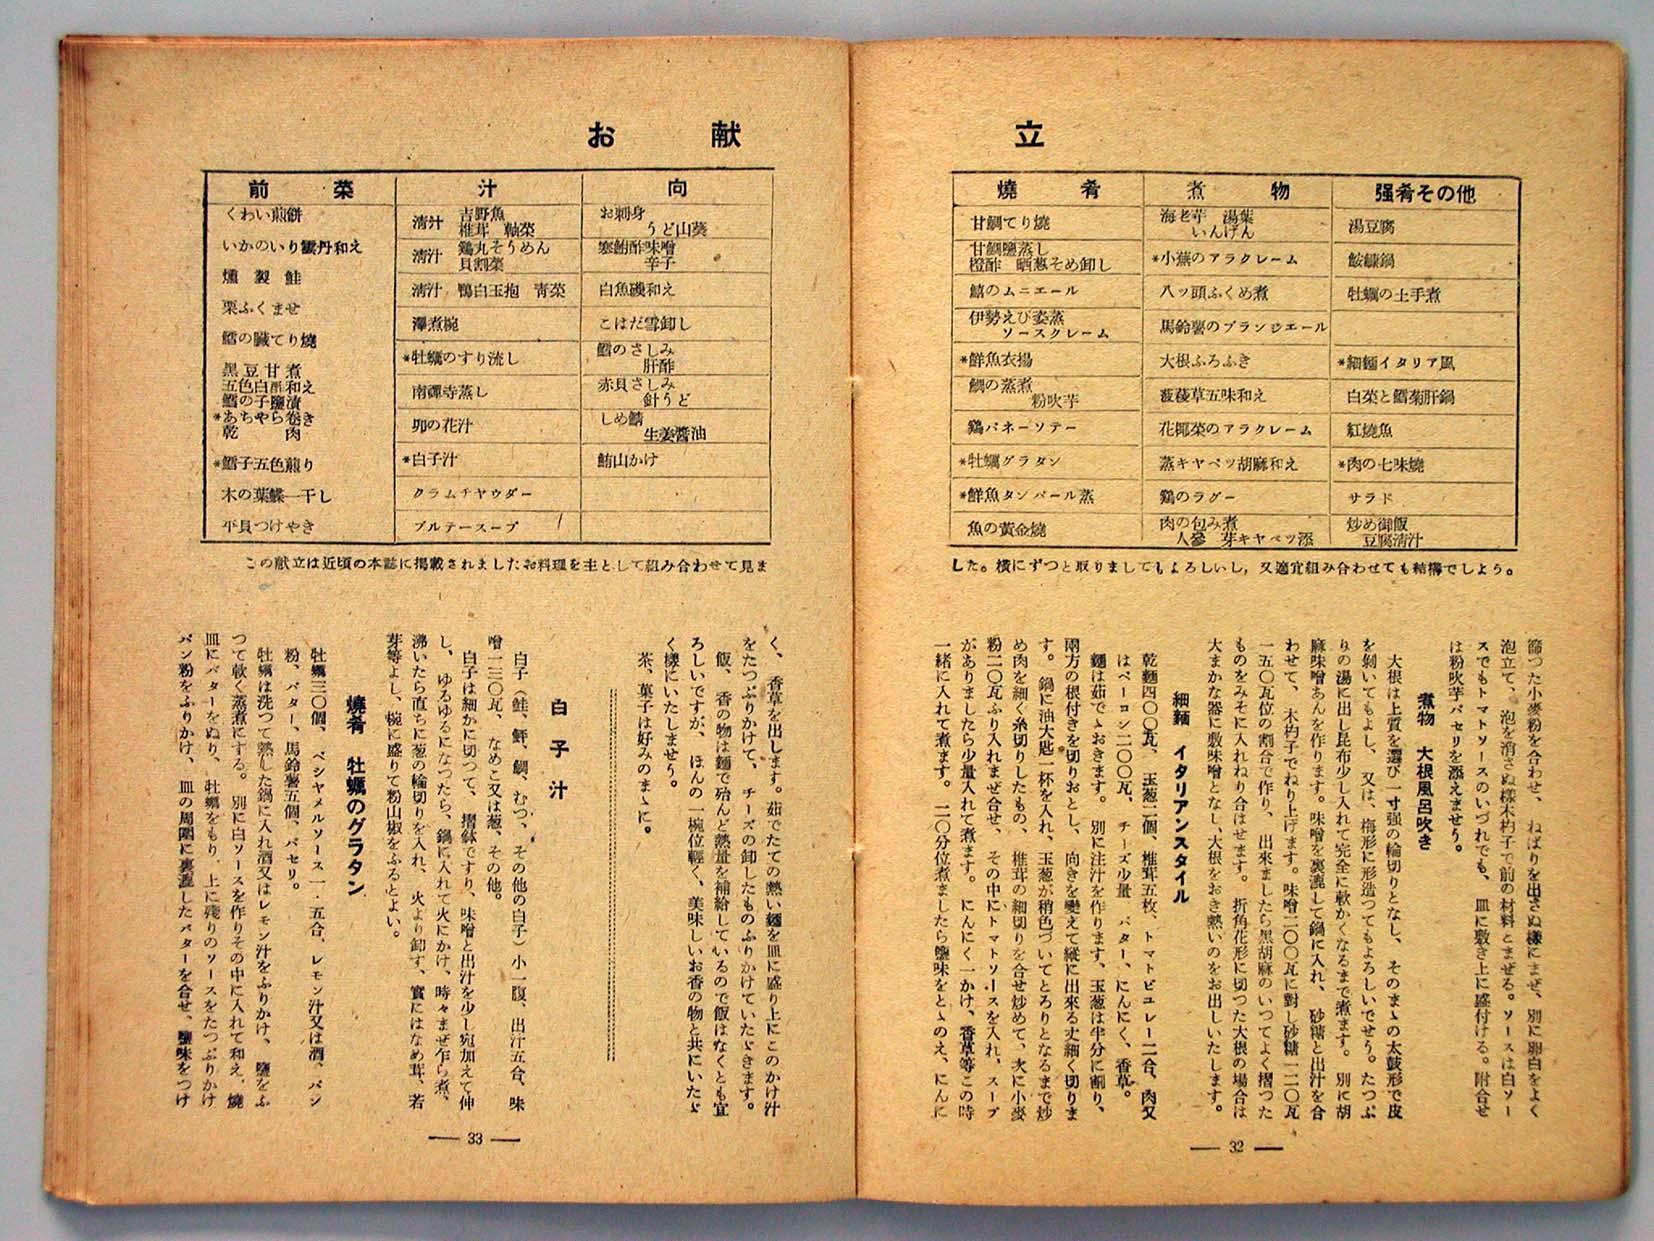 お献立
前菜
くわい煎餅
いかのいり雲丹和え
燻製鮭
栗ふくませ
鱈の臓てり燒
黒豆甘煮
五色白酢和え
鱈の子鹽漬
*あちやら巻き
乾肉
*鱈子五色煎り
木の葉鰈一干し
平貝つけやき
汁
清汁 吉野魚 椎茸 軸菜
清汁 鶏丸そうめん 貝割菜
清汁 鴨白玉抱 靑菜
澤煮椀
*牡蠣のすり流し
南禪寺蒸し
卯の花汁
*白子汁
クラムチヤウダー
ブルテースープ
向
お刺身
うど山葵
寒鮒酢味噌
辛子
白魚磯和え
こはだ雪卸し
鱈のさしみ
肝酢
赤貝さしみ
針うど
しめ鯖
生姜醤油
鮪山かけ
燒肴
甘鯛てり燒
甘鯛鹽蒸し
橙酢 晒葱そめ卸し
のムニエール
伊勢えび姿蒸
ソースクレーム
*鮮魚衣揚
鯛の蒸煮
粉吹芋
鶏パネーソテー
*牡蠣グラタン
*鮮魚タンバール蒸
魚の黄金燒
煮物
海老芋 湯葉
いんげん
*小蕪のアラクレーム
八ッ頭ふくめ煮
馬鈴薯のブランジエール
大根ふろふき
菠薐草五味和え
花椰菜のアラクレーム
蒸キヤベツ胡麻和え
鶏のラグー
肉の包み煮
人參 芽キヤベツ添
强肴その他
湯豆腐
鮟鱇鍋
牡蠣の土手煮
*細麺イタリア風
白菜と鱈菊肝鍋
紅燒魚
*肉の七味燒
サラド
炒め御飯
豆腐清汁
この献立は近頃の本誌に掲載されましたお料理を主として組み合わせて見ま
した。横にずつと取りましてもよろしいし,又適宜組み合わせても結構でしよう。
篩つた小麥粉を合わせ、ねばりを出さぬ様にまぜ、別に卵白をよく
泡立て、泡を消さぬ様木杓子で前の材料とまぜる。ソースは白ソー
スでもトマトソースのいづれでも、皿に敷き上に盛付ける。附合せ
は粉吹芋パセリを添えませう。
煮物 大根風呂吹き
大根は上質を選び一寸强の輪切りとなし、そのまゝの太鼓形で皮
を剝いてもよし、又は、梅形に形造つてもよろしいでせう。たつぷ
りの湯に出し昆布少し入れて完全に軟かくなるまで煮ます。別に胡
麻味噌あんを作ります。味噌を裏漉して鍋に入れ、砂糖と出汁を合
わせて、木杓子でねり上げます。味噌二〇〇瓦に對し砂糖一二〇瓦
一五〇瓦位の割合で作り、出來ましたら黒胡麻のいつてよく摺つた
ものをみそに入れねり合はせます。折角花形に切つた大根の場合は
大まかな器に敷味噌となし、大根をおき熱いのをお出しいたします。
細麺 イタリアンスタイル
乾麺四〇〇瓦、玉葱二個、椎茸五枚、トマトピユレー二合、肉又
はベーコン二〇〇瓦、チーズ少量 バター、にんにく、香草。
麺は茹でゝおきます。別に注汁を作ります、玉葱は半分に割り、
兩方の根付きを切りおとし、向きを變えて縱に出來る丈細く切りま
す。鍋に油大匙一杯を入れ、玉葱が稍色づいてとろりとなるまで炒
め肉を細く糸切りしたもの、椎茸の細切りを合せ炒めて、次に小麥
粉二〇瓦ふり入れまぜ合せ、その中にトマトソースを入れ、スープ
がありましたら少量入れて煮ます。にんにく一かけ、香草等この時
一緒に入れて煮ます。二〇分位煮ましたら鹽味をとゝのえ、にんに
— 32 —
く、香草を出します。茹でたての熱い麺を皿に盛り上にこのかけ汁
をたつぷりかけて、チーズの卸したものふりかけていたゞきます。
飯、香の物は麺で殆んど熱量を補給しているので飯はなくとも宜
ろしいですが、ほんの一椀位輕く、美味しいお香の物と共にいたゞ
く様にいたしませう。
茶、菓子は好みのまゝに。
白子汁
白子(鮭、鮃、鯛、むつ、その他の白子)小一腹、出汁五合、味
噌一三〇瓦、なめこ又は葱、その他。
白子は細かに切つて、摺鉢ですり、味噌と出汁を少し宛加えて伸
し、ゆるゆるになつたら、鍋に入れて火にかけ、時々まぜ乍ら煮、
沸いたら直ちに葱の輪切りを入れ、火より卸す、實にはなめ茸、若
芽等よし、椀に盛りて粉山椒をふるとよい。
燒肴 牡蠣のグラタン
牡蠣三〇個、ベシヤメルソース一・五合、レモン汁又は酒、パン
粉、バター、馬鈴薯五個、パセリ。
牡蠣は洗つて熱した鍋に入れ酒又はレモン汁をふりかけ、鹽をふ
つて軟く蒸煮にする。別に白ソースを作りその中に入れて和え、燒
皿にバターをぬり、牡蠣をもり、上に殘りのソースをたつぷりかけ
パン粉をふりかけ、皿の周圍に裏漉したバターを合せ、鹽味をつけ
— 33 —